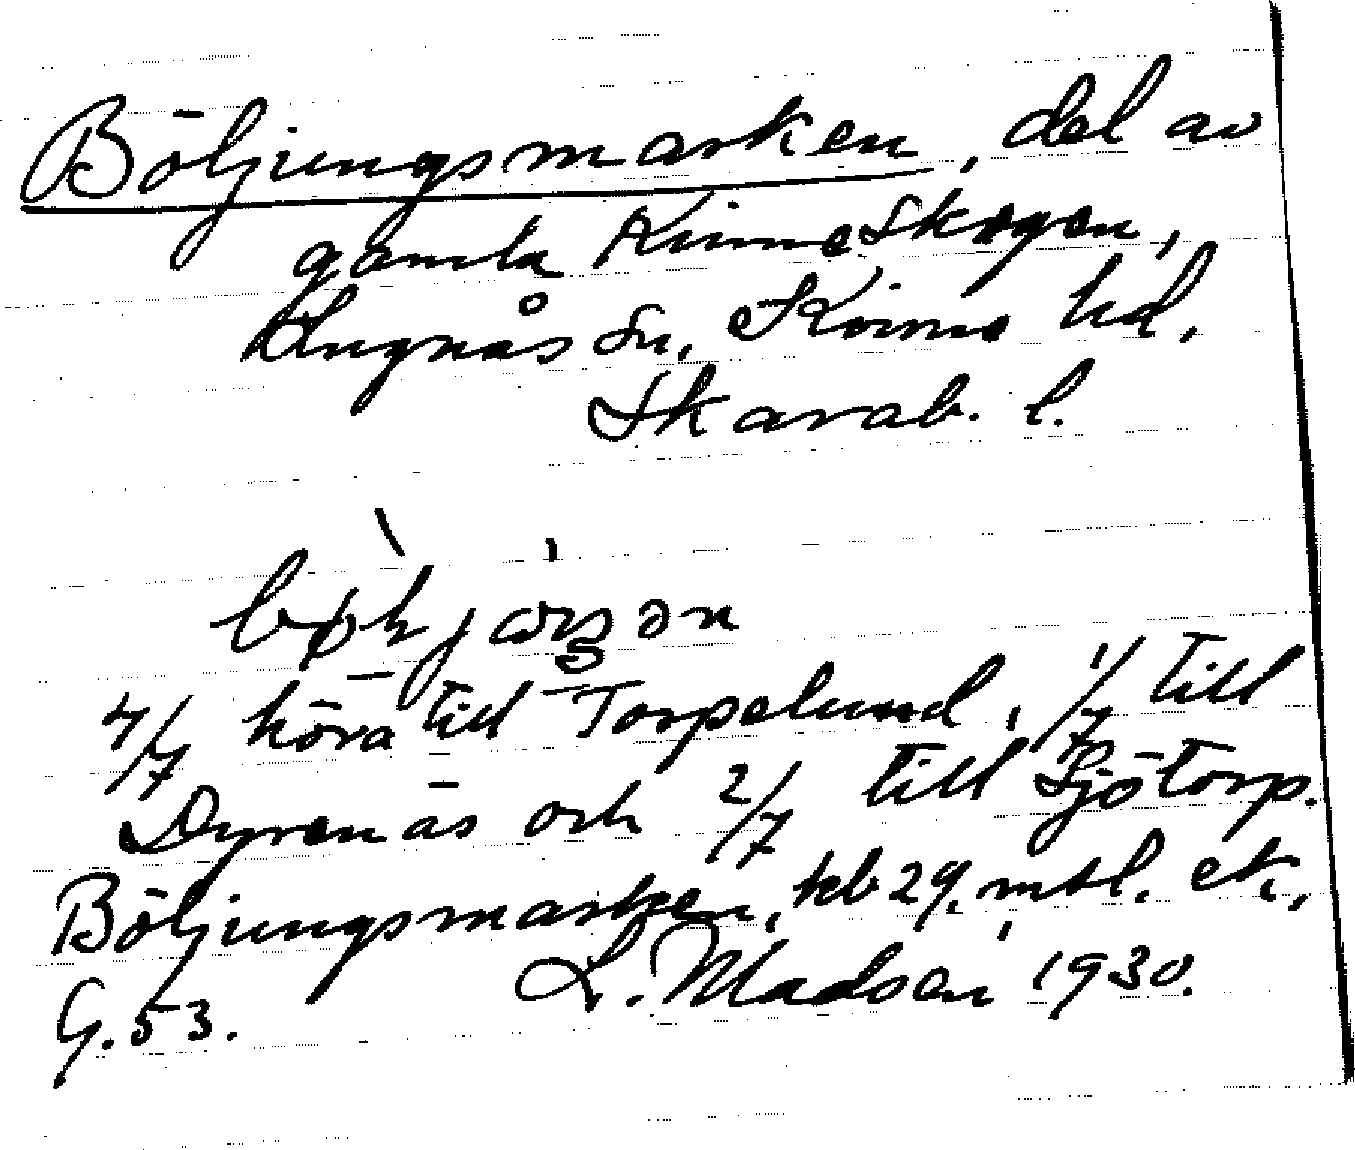 Böljungsmarken, del av
gamla Kinneskogen,
Lugnås sn, Kinne hd.
Skarab. l.
4/7 höra till Torpelund, 1/7 till
Dyrenäs och 2/7 till Sjötorp.
Böljungsmarken, kb 29, mtl. ek,
G. 53. L. Madsen 1930.